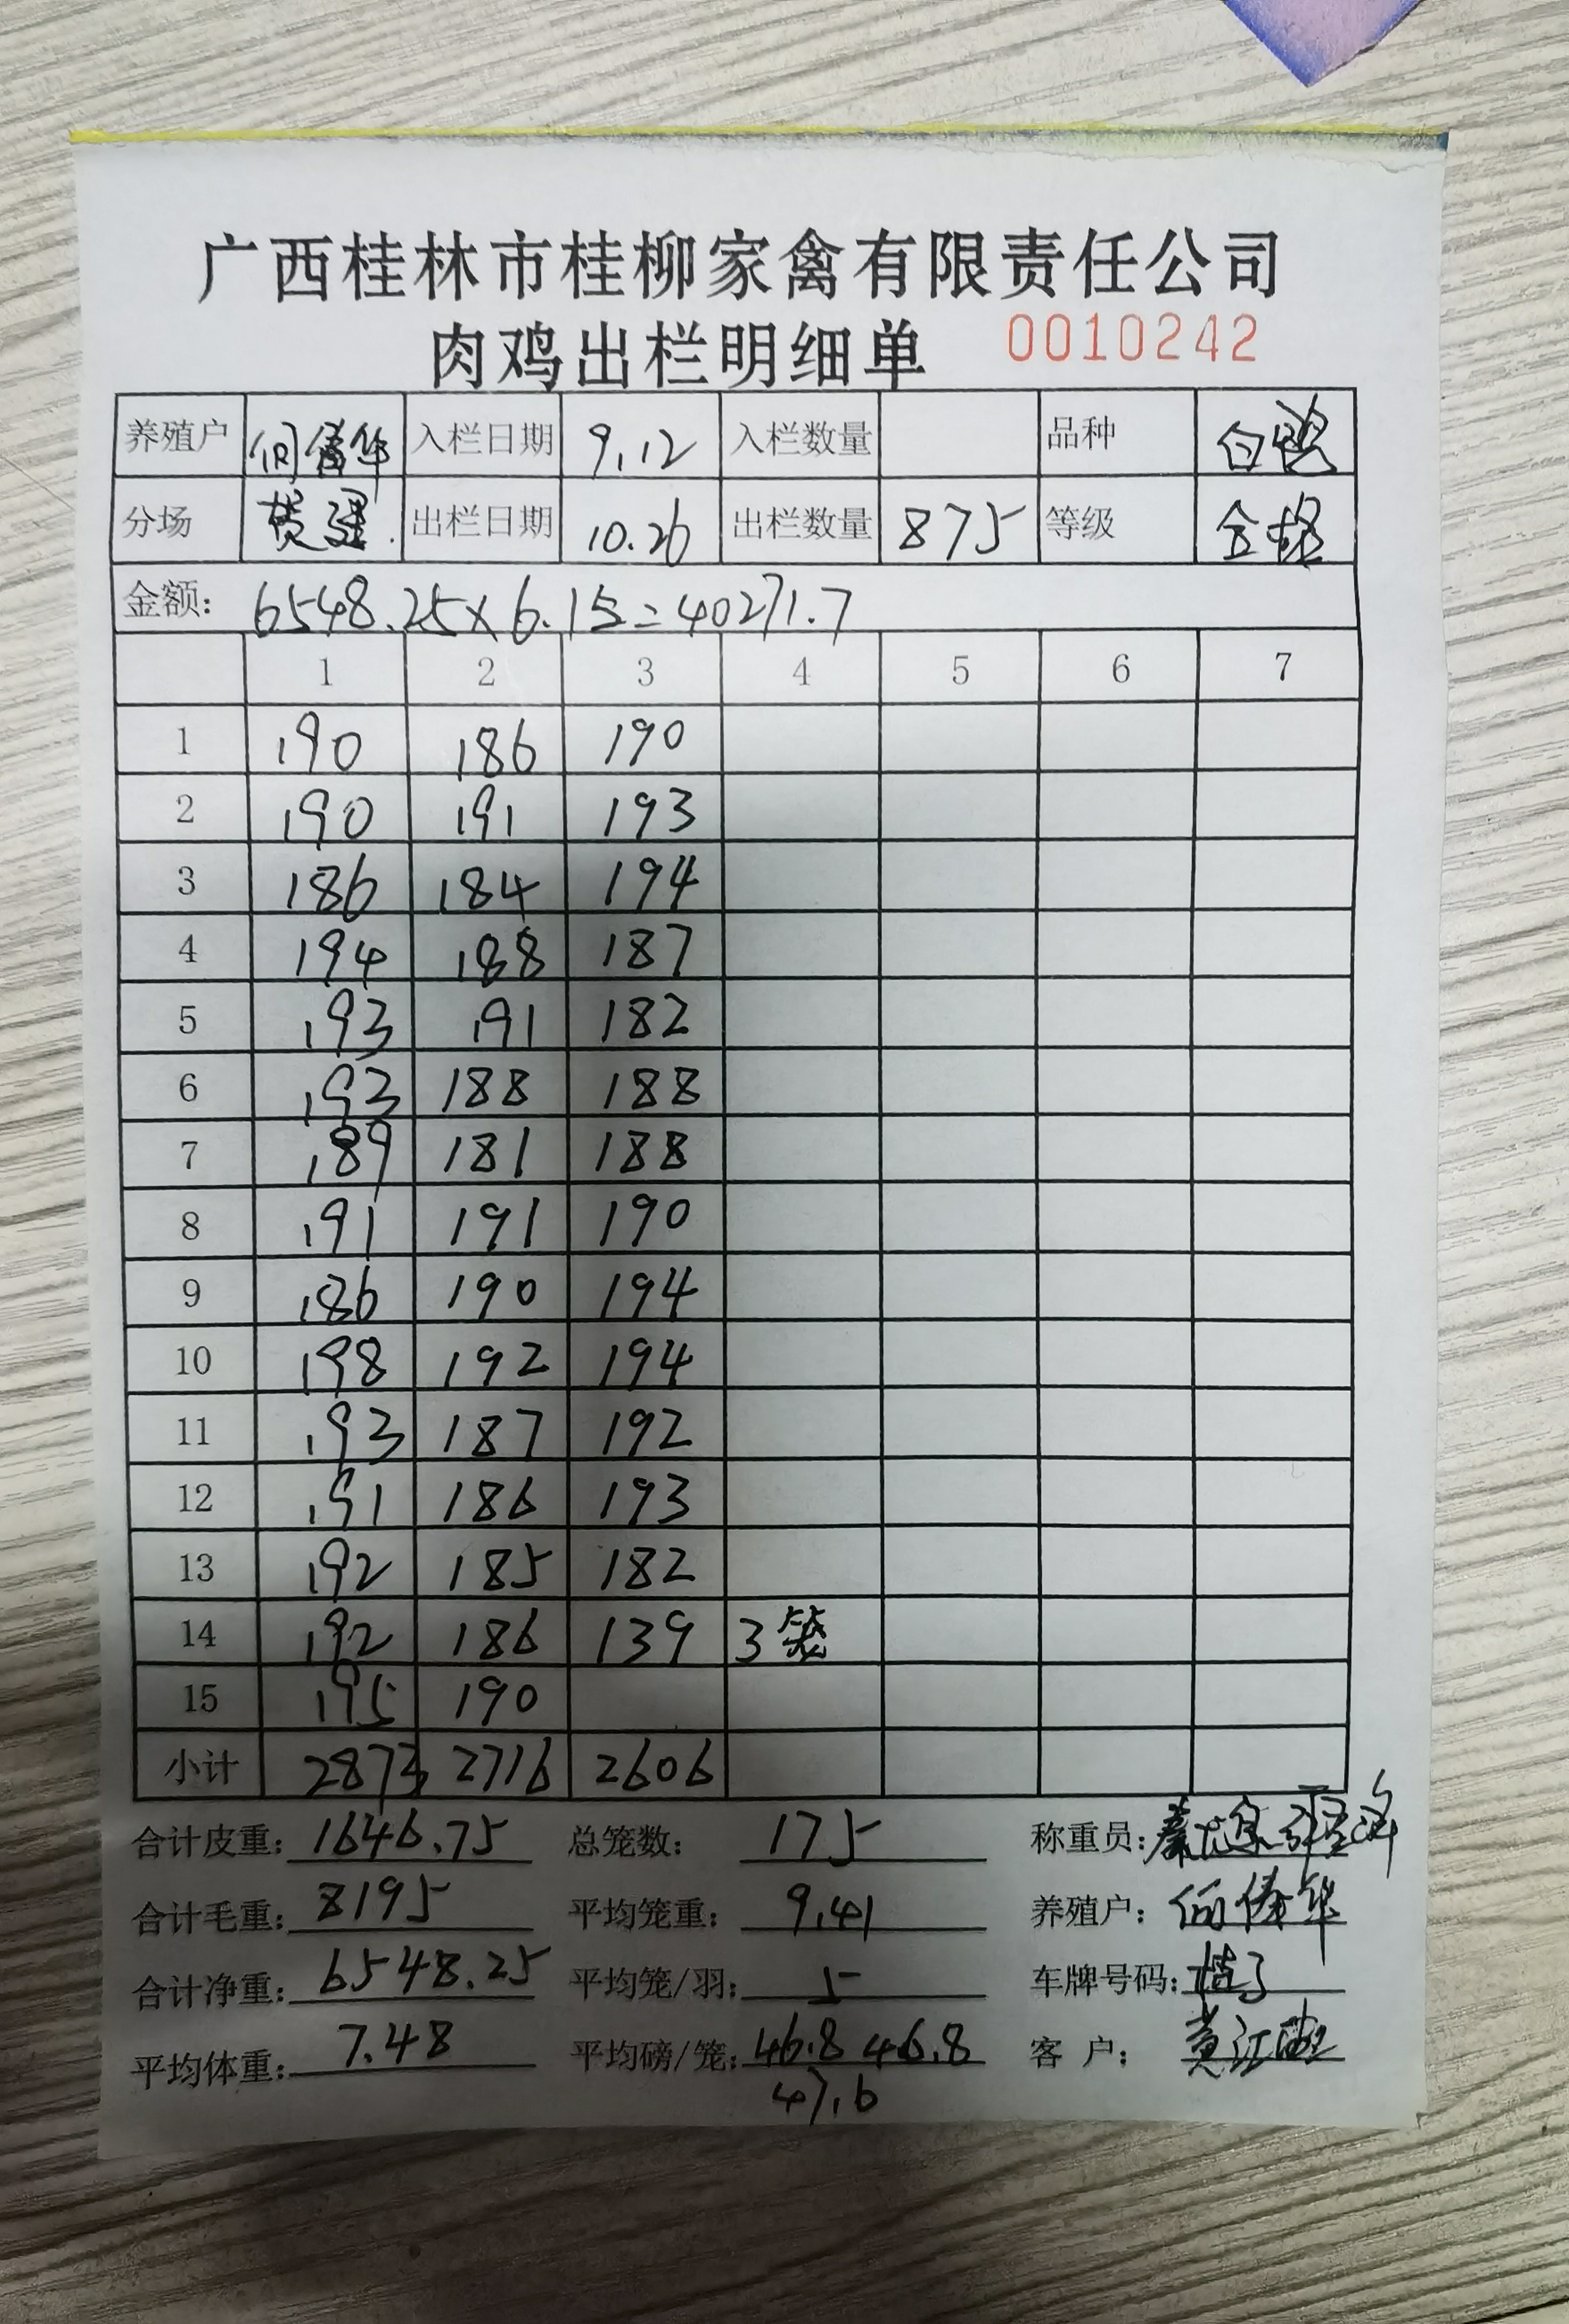 广西桂林市桂柳家禽有限责任公司
肉鸡出栏明细单 0010242
养殖户 入栏日期 9.12 入栏数量 品种 白鸭
分场 黄建 出栏日期 10.26 出栏数量 875 等级 合格
金额： 6548.25×6.15=40271.7
1 2 3 4 5 6 7
1 190 186 190
2 190 191 193
3 186 184 194
4 194 188 187
5 193 191 182
6 193 188 188
7 189 181 188
8 191 191 190
9 186 190 194
10 198 192 194
11 193 187 192
12 191 186 193
13 192 185 182
14 192 186 139 3笼
15 195 190
小计 2873 2716 2606
合计皮重： 1646.75 总笼数： 175 称重员：
合计毛重： 8195 平均笼重： 9.41 养殖户：
合计净重： 6548.25 平均笼/羽： 5 车牌号码：
平均体重： 7.48 平均磅/笼： 46.8 46.8 客户：
47.6